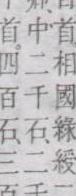 首相國綠綬
中二千石、二千
首。四百石、三百